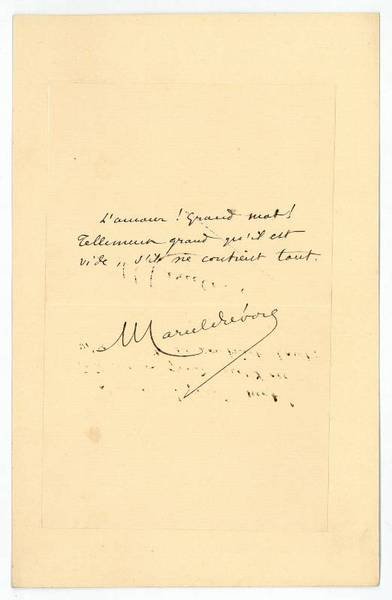 L'amour ! Grand mot !
Tellement grand qu'il est
vide, s'il ne contient tout.
Marcel Prévost